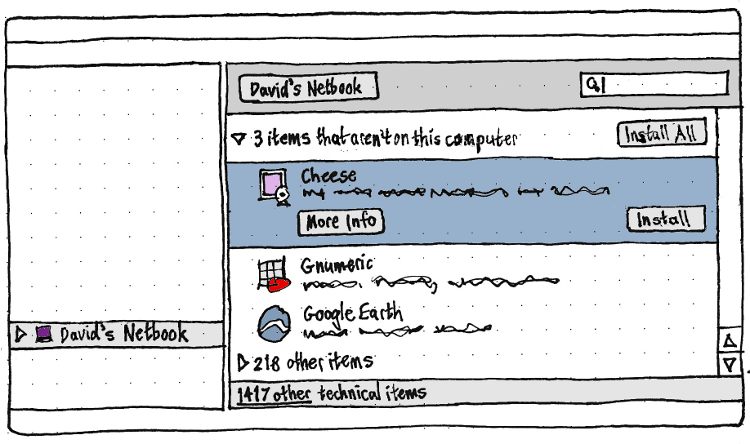 David's Netbook
3 items that aren't on this computer
Install All
Cheese
More Info
Install
Gnumeric
Google Earth
David's Netbook
218 other items
1417 other technical items